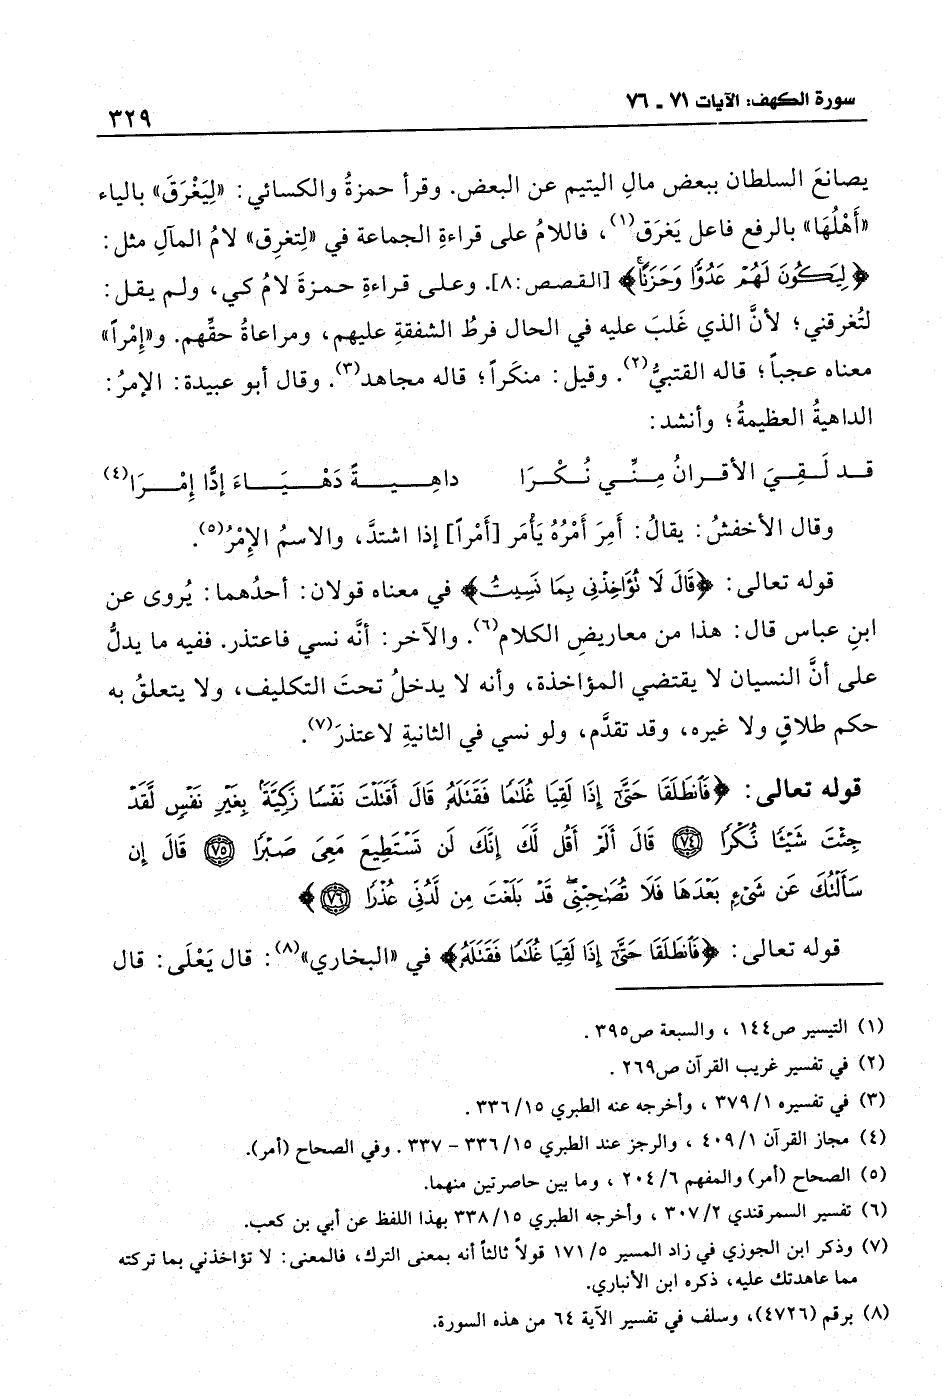 سورة الكهف: الآيات ٧١ - ٧٦
٣٢٩
يصانعَ السلطان ببعض مالِ اليتيم عن البعض. وقرأ حمزةُ والكسائي: «لِيَغْرَقَ» بالياء
«أَهْلُهَا» بالرفع فاعل يَغرَق(١)، فاللامُ على قراءةِ الجماعة في «لِتغرِق» لامُ المآل مثل:
﴿لِيَكُونَ لَهُمْ عَدُوًّا وَحَزَنًا﴾ [القصص:٨]. وعلى قراءةِ حمزةَ لامُ كي، ولم يقل:
لتُغرقني؛ لأنَّ الذي غَلبَ عليه في الحال فرطُ الشفقةِ عليهم، ومراعاةُ حقِّهم. و«إِمْراً»
معناه عجباً؛ قاله القتبيُّ(٢). وقيل: منكَراً؛ قاله مجاهد(٣). وقال أبو عبيدة: الإمرُ:
الداهيةُ العظيمةُ؛ وأنشد:
قد لَقِيَ الأقرانُ مِنِّي نُكْرَا داهِيةً دَهْيَاءَ إدًّا إِمْرَا(٤)
وقال الأخفشُ: يقالُ: أَمِرَ أَمْرُهُ يَأْمَر [أَمْراً] إذا اشتدَّ، والاسمُ الإِمْرُ(٥).
قوله تعالى: ﴿قَالَ لَا تُؤَاخِذْنِي بِمَا نَسِيتُ﴾ في معناه قولان: أحدُهما: يُروى عن
ابنِ عباس قال: هذا من معاريضِ الكلام(٦). والآخر: أنَّه نسي فاعتذر. ففيه ما يدلُّ
على أنَّ النسيان لا يقتضي المؤاخذة، وأنه لا يدخلُ تحتَ التكليف، ولا يتعلقُ به
حكم طلاقٍ ولا غيره، وقد تقدَّم، ولو نسي في الثانيةِ لاعتذرَ(٧).
قوله تعالى: ﴿فَٱنطَلَقَا حَتَّىٰٓ إِذَا لَقِيَا غُلَٰمًا فَقَتَلَهُۥ قَالَ أَقَتَلْتَ نَفْسًا زَكِيَّةًۢ بِغَيْرِ نَفْسٍ لَّقَدْ
جِئْتَ شَيْـًٔا نُّكْرًا ٧٤ قَالَ أَلَمْ أَقُل لَّكَ إِنَّكَ لَن تَسْتَطِيعَ مَعِىَ صَبْرًا ٧٥ قَالَ إِن
سَأَلْتُكَ عَن شَىْءٍۭ بَعْدَهَا فَلَا تُصَٰحِبْنِى ۖ قَدْ بَلَغْتَ مِن لَّدُنِّى عُذْرًا ٧٦﴾
قوله تعالى: ﴿فَٱنطَلَقَا حَتَّىٰٓ إِذَا لَقِيَا غُلَٰمًا فَقَتَلَهُۥ﴾ في «البخاري»(٨): قال يَعْلَى: قال
(١) التيسير ص١٤٤ ، والسبعة ص٣٩٥ .
(٢) في تفسير غريب القرآن ص٢٦٩ .
(٣) في تفسيره ٣٧٩/١ ، وأخرجه عنه الطبري ٣٣٦/١٥ .
(٤) مجاز القرآن ٤٠٩/١ ، والرجز عند الطبري ٣٣٦/١٥ - ٣٣٧ . وفي الصحاح (أمر).
(٥) الصحاح (أمر) والمفهم ٢٠٤/٦ ، وما بين حاصرتين منهما.
(٦) تفسير السمرقندي ٣٠٧/٢ ، وأخرجه الطبري ٣٣٨/١٥ بهذا اللفظ عن أبي بن كعب.
(٧) وذكر ابن الجوزي في زاد المسير ١٧١/٥ قولاً ثالثاً أنه بمعنى الترك، فالمعنى: لا تؤاخذني بما تركته
مما عاهدتك عليه، ذكره ابن الأنباري.
(٨) برقم (٤٧٢٦)، وسلف في تفسير الآية ٦٤ من هذه السورة.